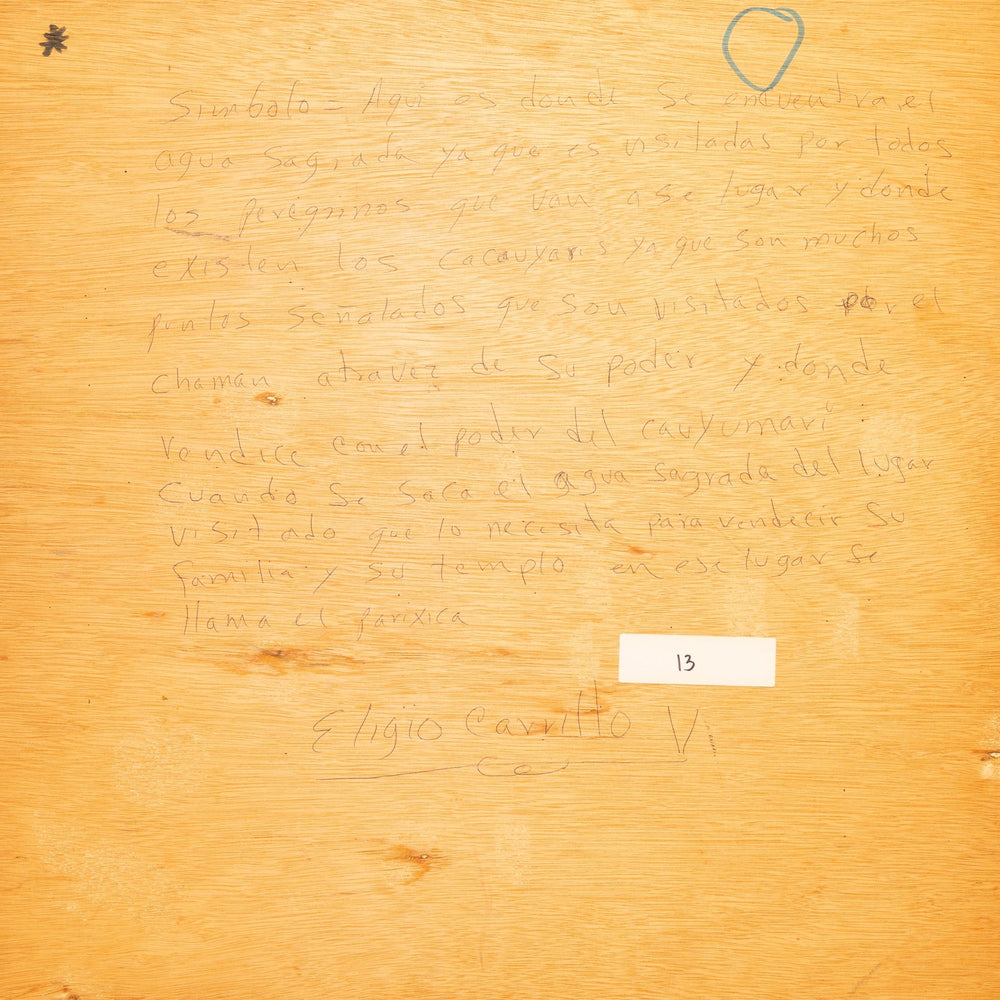 Simbolo = Aqui es donde se encuentra el
agua sagrada ya que es visitadas por todos
los peregrinos que van a se lugar y donde
existen los cacauyaris ya que son muchos
puntos señalados que son visitados por el
chaman atravez de su poder y donde
vendice con el poder del cauyumari.
Cuando se saca el agua sagrada del lugar
visitado que lo necesita para vendecir su
familia y su templo en ese lugar se
llama el parixica
13
Eligio Carrillo V.